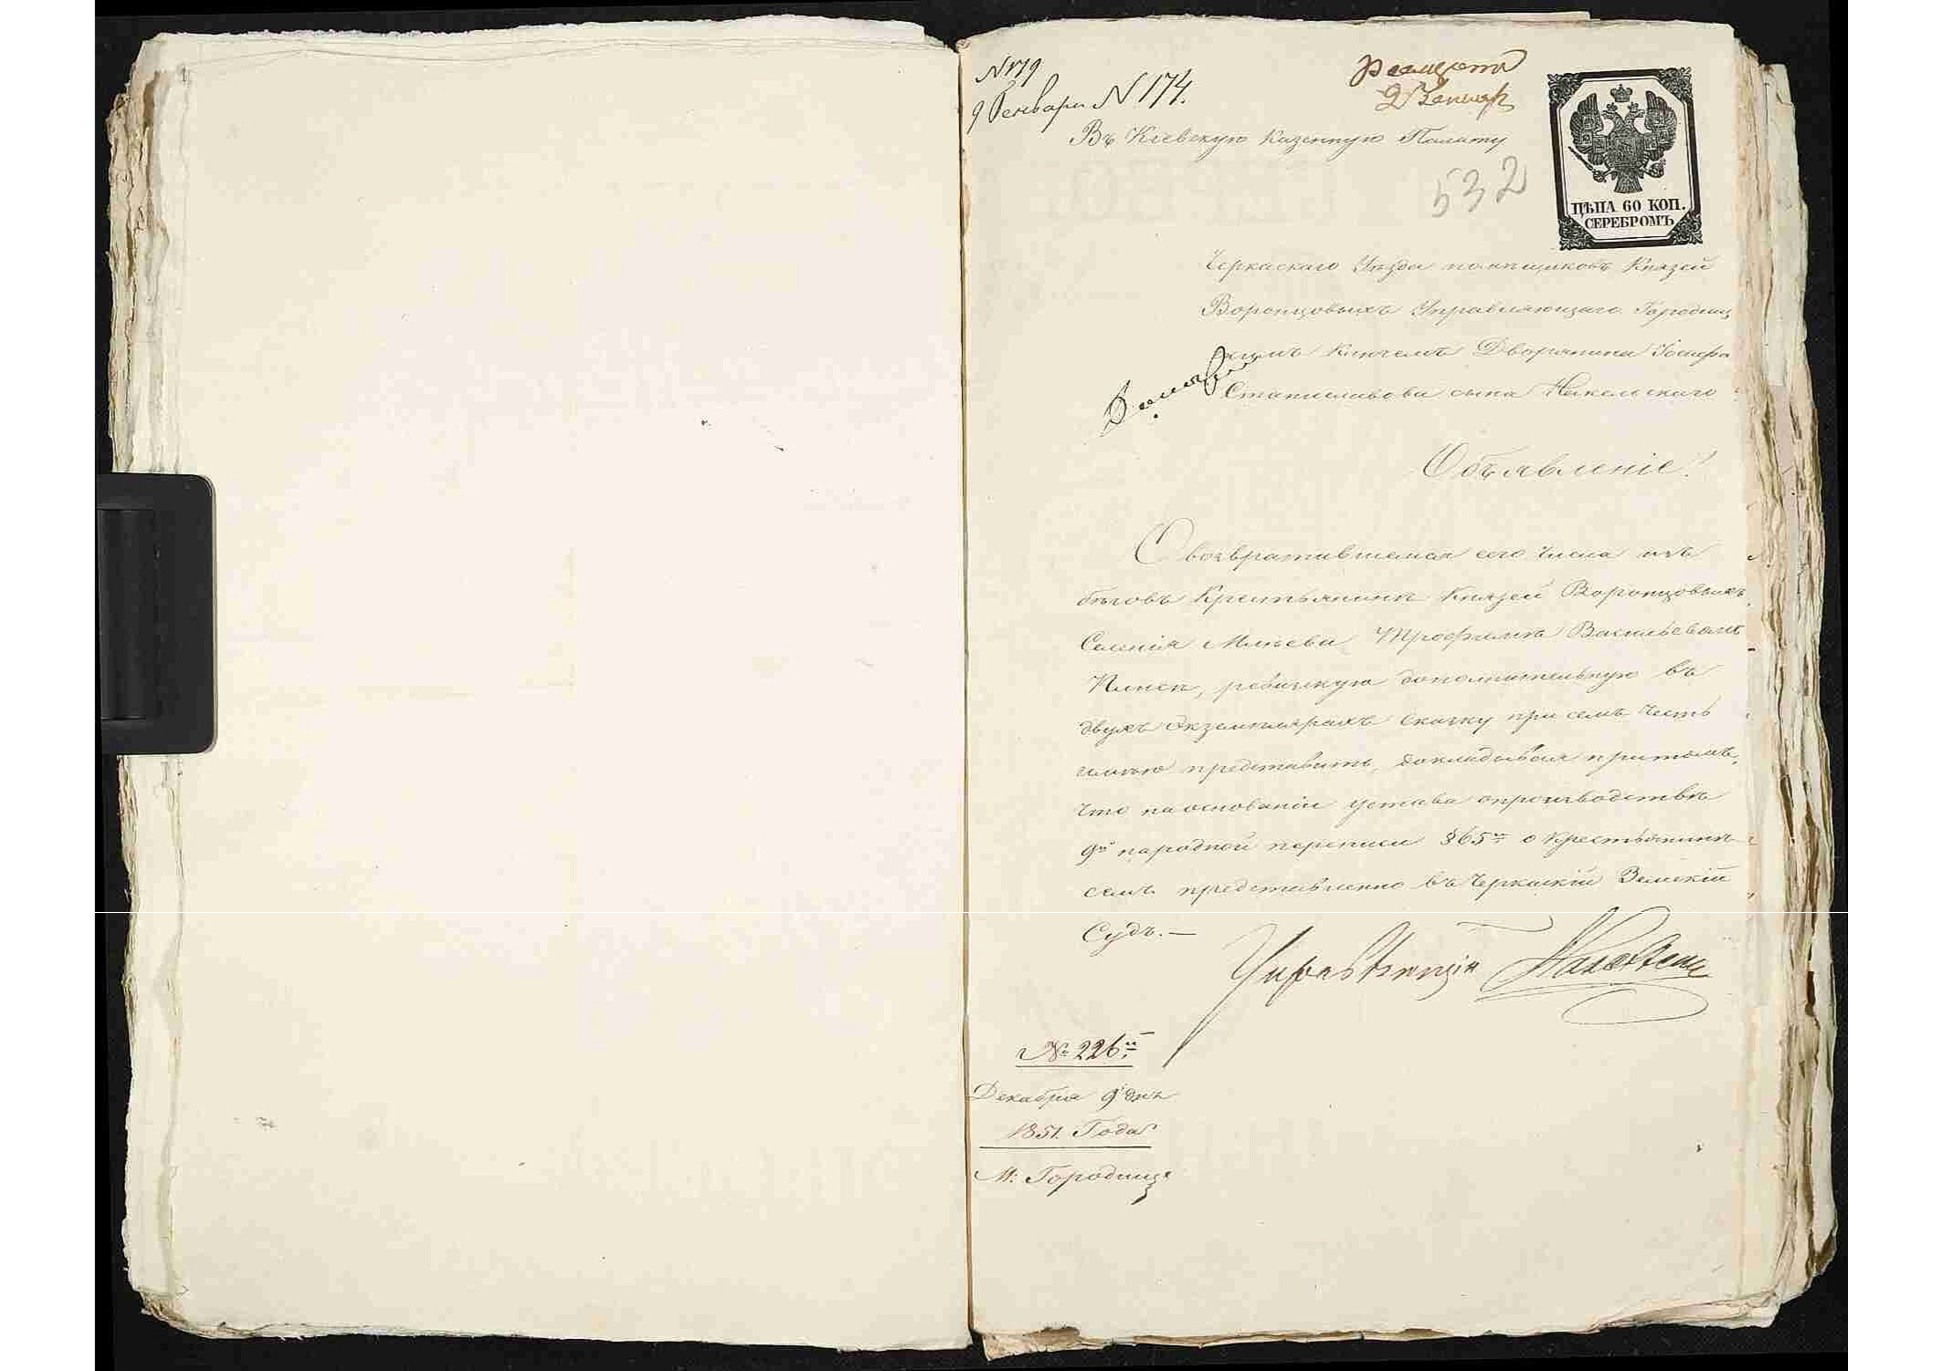 N 179
9 Генваря N 174.
9 Генвар
Въ Кіевскую Казенную Палату
532
ЦѢНА 60 КОП.
СЕРЕБРОМЪ
Черкаскаго Уѣзда помѣщиковъ Князей
Воронцовыхъ Управляющаго Городищ
скимъ Ключемъ Дворянина Іосифа
Станиславова сына
Объявленіе!
О возвратившемся сего числа изъ
бѣговъ Крестьянинѣ Князей Воронцовыхъ
Селенія Млѣева Трофимѣ Васильевѣ
ревизскую дополнительную въ
двухъ экземплярахъ скаску при семъ честь
имѣю представить, докладывая притомъ,
что на основаніи устава о производствѣ
9й народной переписи §65го о крестьянинѣ
семъ представленно въ Черкаскій Земскій
Судъ. —
Управляющій
№ 226й
Декабря 9 дня
1851 Года
М: Городище